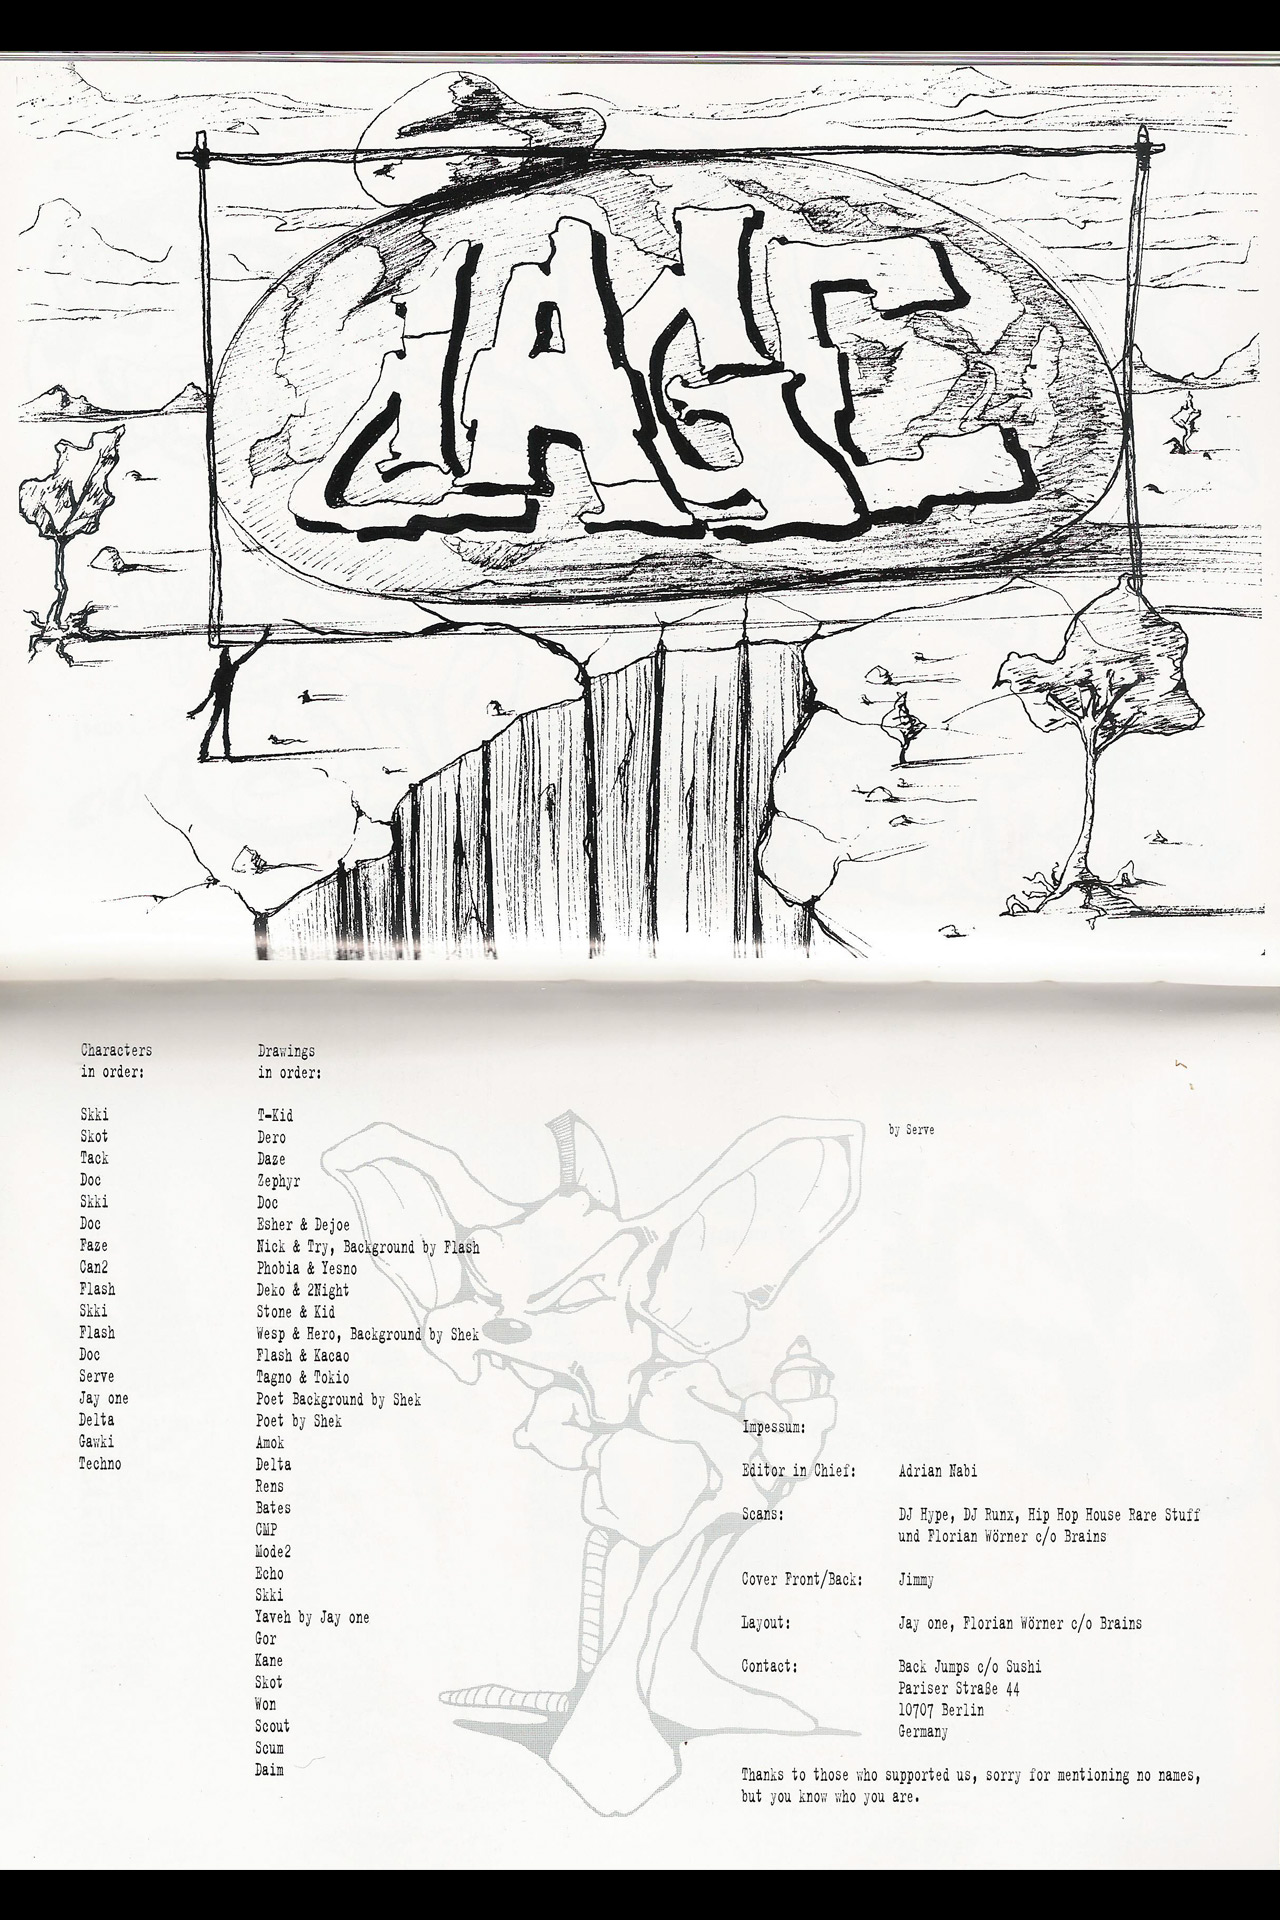 Characters
in order:
Skki
Skot
Tack
Doc
Skki
Doc
Faze
Can2
Flash
Skki
Flash
Doc
Serve
Jay one
Delta
Gawki
Techno
Drawings
in order:
T-Kid
Dero
Daze
Zephyr
Doc
Esher & Dejoe
Nick & Try, Background by Flash
Phobia & Yesno
Deko & 2Night
Stone & Kid
Wesp & Hero, Background by Shek
Flash & Kacao
Tagno & Tokio
Poet Background by Shek
Poet by Shek
Amok
Delta
Rens
Bates
CMP
Mode2
Echo
Skki
Yaveh by Jay one
Gor
Kane
Skot
Won
Scout
Scum
Daim
by Serve
Impessum:
Editor in Chief: Adrian Nabi
Scans: DJ Hype, DJ Runx, Hip Hop House Rare Stuff
und Florian Wörner c/o Brains
Cover Front/Back: Jimmy
Layout: Jay one, Florian Wörner c/o Brains
Contact: Back Jumps c/o Sushi
Pariser Straße 44
10707 Berlin
Germany
Thanks to those who supported us, sorry for mentioning no names,
but you know who you are.